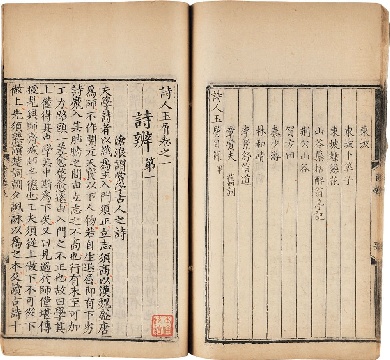 東坡詞
東坡卜算子
山谷櫽括醉翁亭記
荊公山谷
賀方回
秦少游
林和靖
章質夫
詩人玉屑目錄畢
詩人玉屑卷之一
詩辨第一
滄浪謂當學古人之詩
夫學詩者以識為主入門須正立志須高以漢魏晉盛唐
為師不作開元天寶以下人物若自生退屈即有下劣
詩魔入其肺腑之間由立志之不高也行有未至可加
工力路頭一差愈騖愈遠由入門之不正也故曰學其
上僅得其中學其中斯為下矣又曰見過於師僅堪傳
授見與師齊減師半德也工夫須從上做下不可從下
做上先須熟讀楚詞朝夕諷詠以為之本及讀古詩十